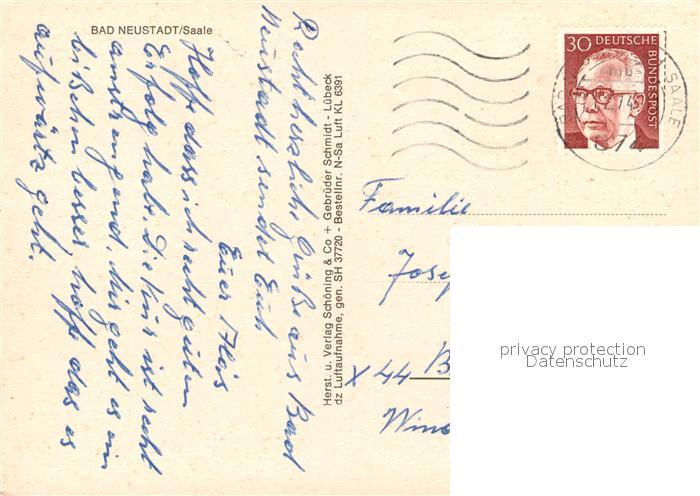 BAD NEUSTADT/Saale
Recht herzliche Grüße aus Bad
Neustadt sendet Euch
Euer Alois
Hoffe dass ich recht guten
Erfolg habe. Die Kur ist recht
anstrengend. Mir geht es ein
bißchen besser, hoffe das es
aufwärtz geht.
Herst. u. Verlag Schöning & Co + Gebrüder Schmidt - Lübeck
dz Luftaufnahme, gen. SH 37720 - Bestellnr. N-Sa Luft KL 6391
30 DEUTSCHE
BUNDESPOST
SAALE
74
Familie
Josep
X 44 B
Wind
privacy protection
Datenschutz